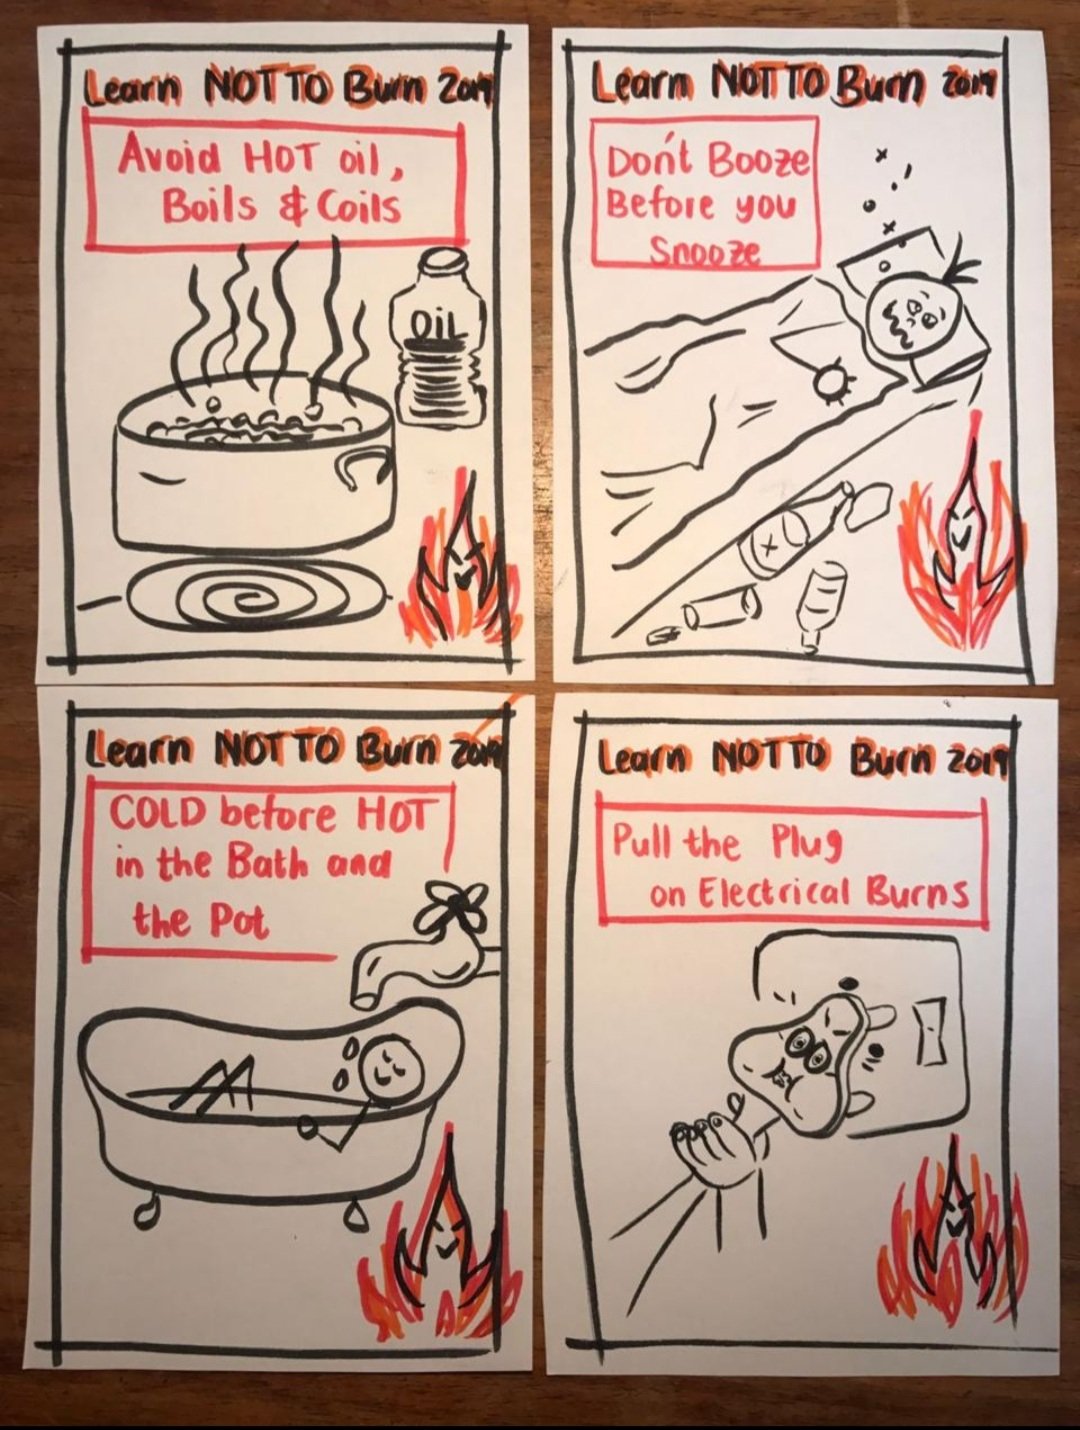 Learn NOT TO Burn 2019
Avoid HOT oil,
Boils & Coils
OIL
Learn NOT TO Burn 2019
Don't Booze
Before you
Snooze
Learn NOT TO Burn 2019
COLD before HOT
in the Bath and
the Pot
Learn NOT TO Burn 2019
Pull the Plug
on Electrical Burns